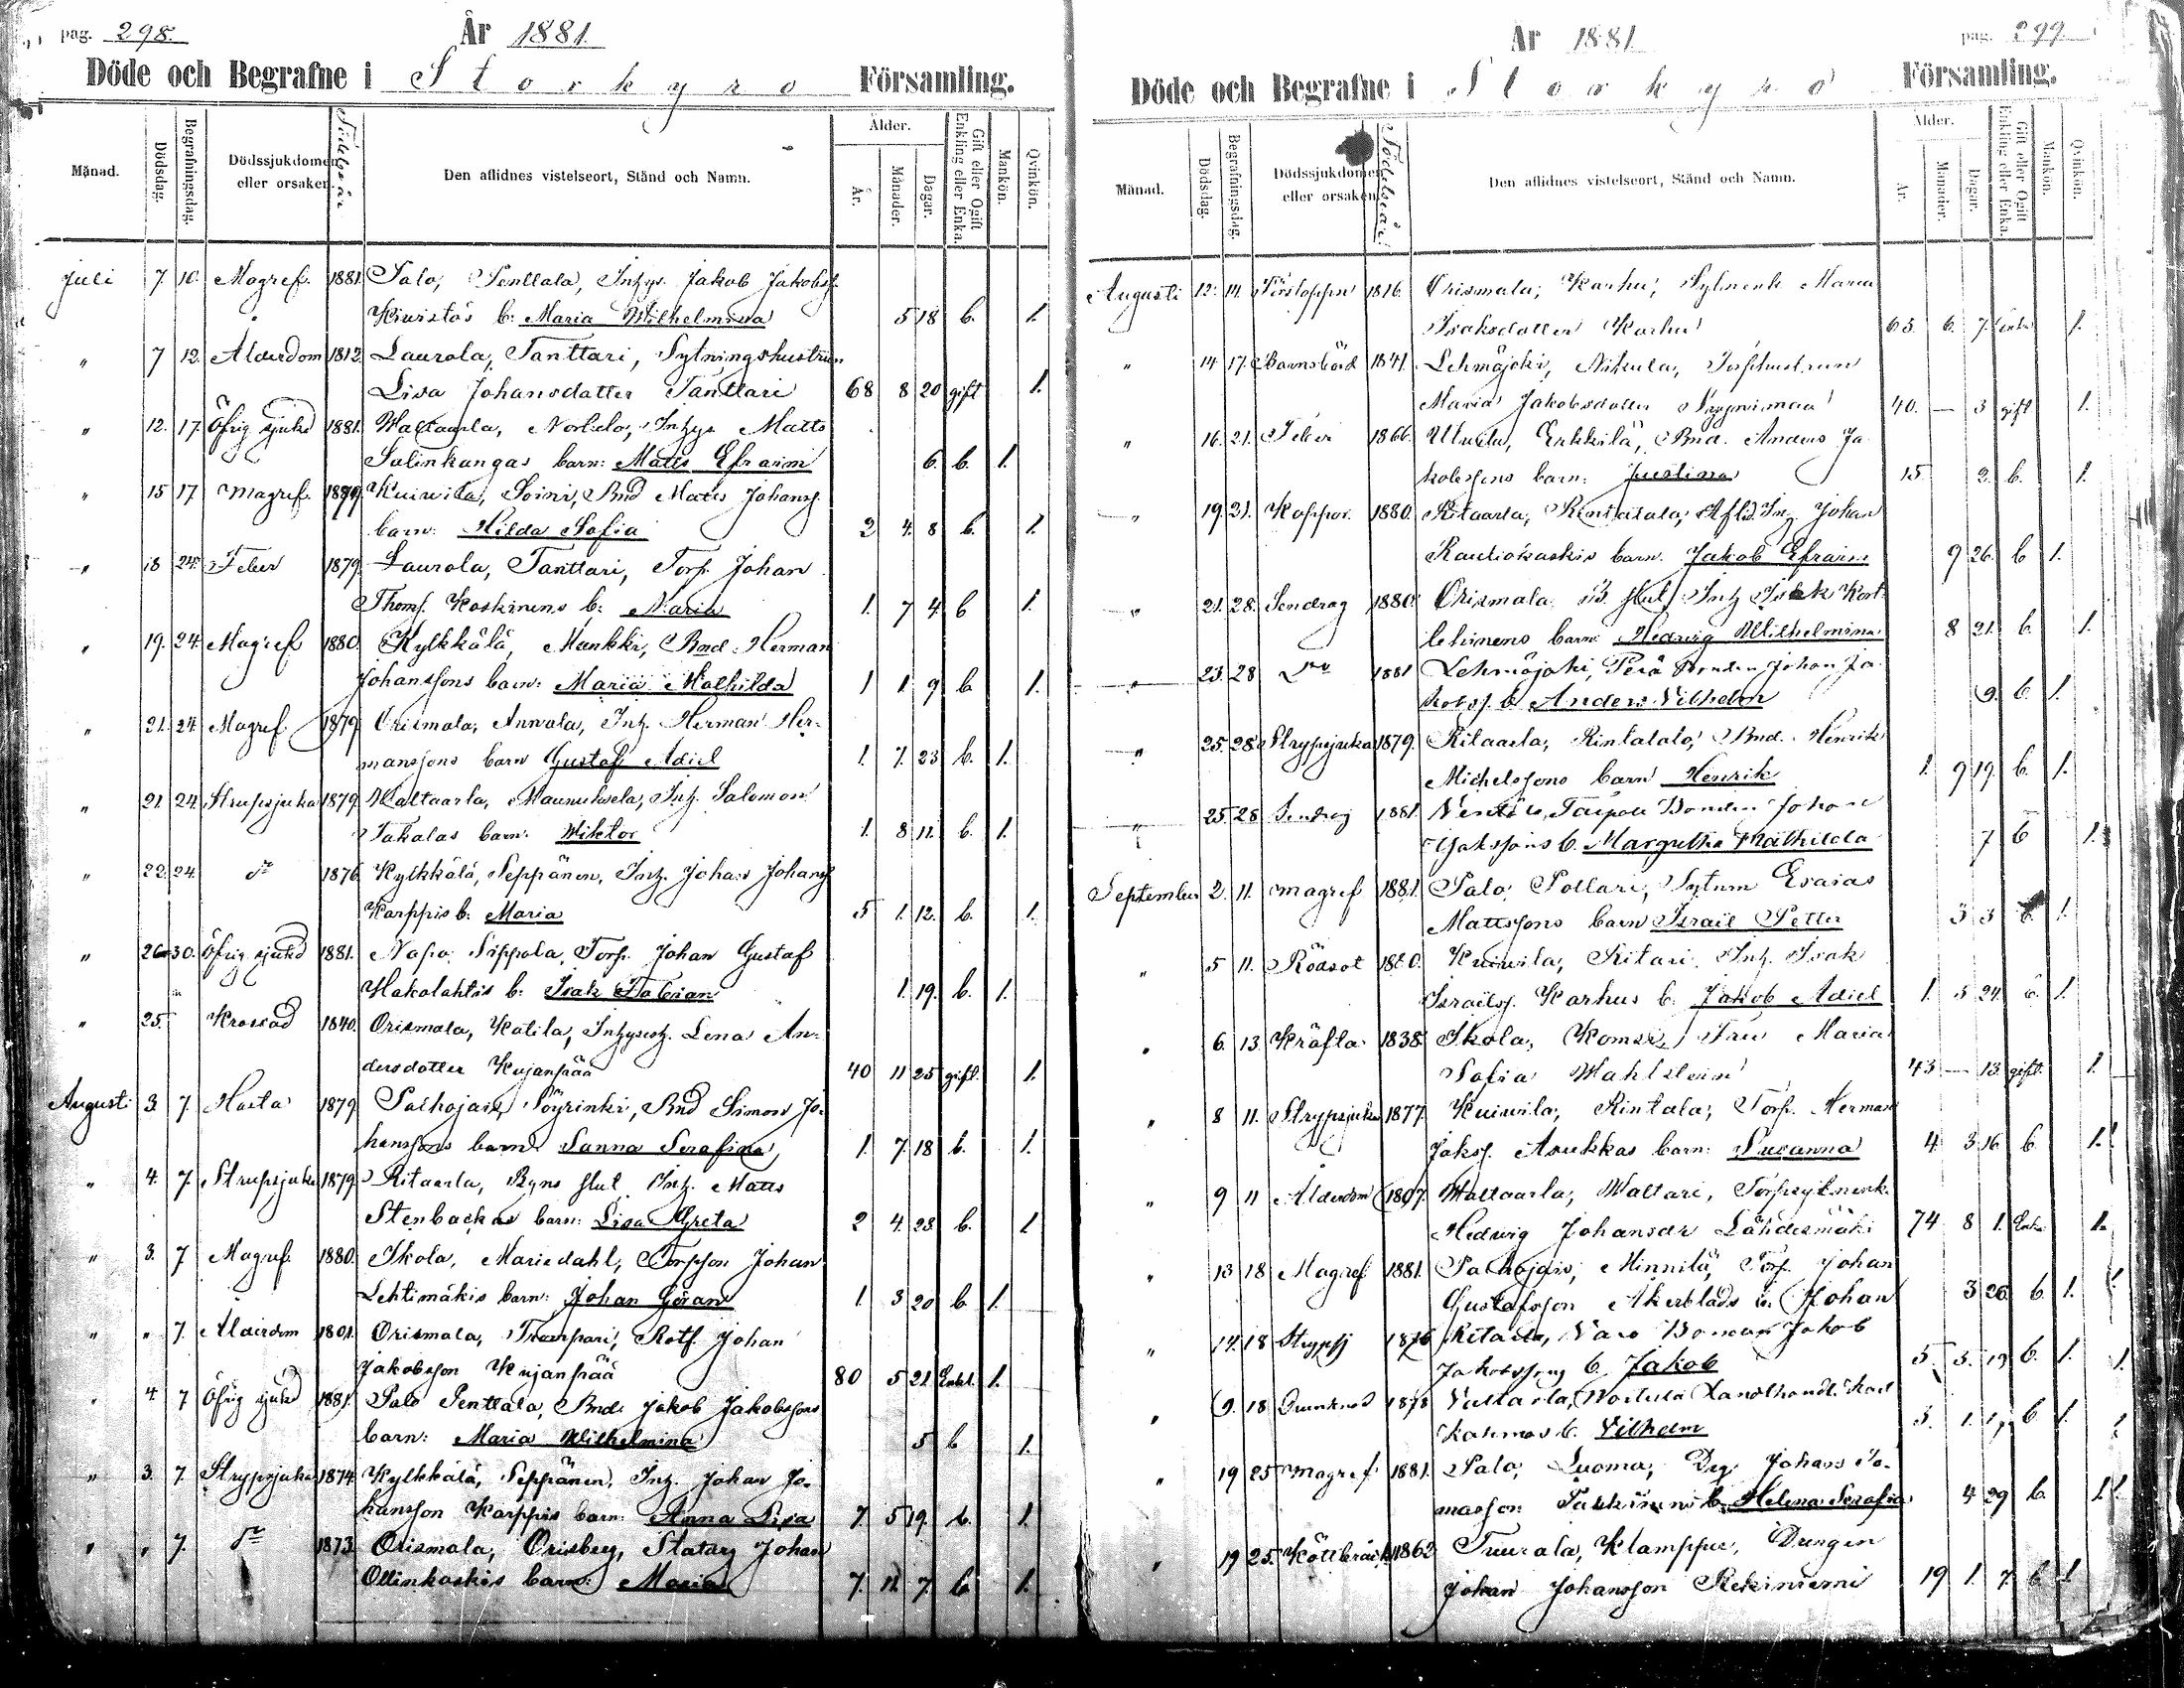 pag. 298.
År 1881.
Döde och Begrafne i Storkyro Församling.
Månad.
Dödsdag.
Begrafningsdag.
Dödssjukdomen eller orsaken.
Födelseår
Den aflidnes vistelseort, Stånd och Namn.
Ålder.
År.
Månader.
Dagar.
Gift eller Ogift Enkling eller Enka.
Mankön.
Qvinkön.
Juli 7. 10. Magref. 1881. Palo, Penttala, Inhys. Jakob Jakobsf.
Kivistös b: Maria Wilhelmina 5 18 b. 1.
" 7 12. Ålderdom 1812. Laurola, Tanttari, Sytningshustrun
Lisa Johansdotter Tanttari 68 8 20 gift 1.
" 12. 17. Öfrig sjukd 1881. Waltaarla, Inhys Matts
Salinkangas barn: Matts Efraim 6. b. 1.
" 15 17 Magref. 1879. Kuiwila, Soini, Bnd Matts Johansf.
barn: Hilda Sofia 2 4. 8 b. 1.
" 18 24. Feber 1879. Laurola, Tanttari, Torp. Johan
Thomf. Koskinens b: Maria 1. 7 4. b 1.
" 19. 24. Magref 1880. Kylkkälä, Munkki, Bnd. Herman
Johanssons barn: Maria Mathilda 1 1. 9 b 1.
" 21. 24. Magref 1879. Orismala, Annala, Inh. Herman Her-
manssons barn Gustaf Adiel 1. 7. 23 b. 1.
" 21. 24. Strupsjuka 1879. Waltaarla, Maunuksela, Inh. Salomon
Takalas barn: Wiktor 1. 8 11. b. 1.
" 22. 24. do 1876. Kylkkälä, Seppänen, Inh. Johan Johansf
Karppis b: Maria 5 1. 12. b. 1.
" 26. 30. Öfrig sjukd 1881. Napo, Sippola, Torp. Johan Gustaf
Hakolahtis b: Isak Fabian 1. 19. b. 1.
" 25. Krossad 1840. Orismala, Katila, Lena An-
dersdotter Kujanpää 40 11 25 gift. 1.
Augusti 3. 7. Hosta 1879. Palhojais, Söyrinki, Bnd Simon Jo-
hanssons barn Sanna Serafina 1. 7. 18 b. 1.
" 4. 7. Strupsjuka 1879. Ritaarla, Byns slut Inh. Matts
Stenbackas barn: Lisa Greta 2 4. 23 b. 1
" 3. 7 Magref. 1880. Ikola, Mariedahl, Torpson Johan
Lehtimäkis barn: Johan Göran 1. 3 20 b. 1.
" " 7. Ålderdom 1801. Orismala, Trumpari, Rotf. Johan
Jakobsson Kujanpää 80 5 21. Enkl. 1.
" 4 7 Öfrig sjukd 1881. Palo Penttala, Bnd. Jakob Jakobssons
barn: Maria Wilhelmina 5 b 1.
" 3. 7. Strypsjuka 1874. Kylkkälä, Seppänen, Inh. Johan Jo-
hansson Karppis barn: Anna Lisa 7. 5 19. b. 1.
" " 7. do 1873. Orismala, Orisberg, Statarg Johan
Ollinkoskis barn: Maria 7. 11. 7. b 1.
pag. 299.
År 1881.
Döde och Begrafne i Storkyro Församling.
Månad.
Dödsdag.
Begrafningsdag.
Dödssjukdomen eller orsaken.
Födelseår
Den aflidnes vistelseort, Stånd och Namn.
Ålder.
År.
Månader.
Dagar.
Gift eller Ogift Enkling eller Enka.
Mankön.
Qvinkön.
Augusti 12. 14. Förstoppn 1816. Orismala, Karhu, Maria
Isaksdotter Karhu 65. 6. 7. Enka 1.
" 14 17. Barnsbörd 1841. Lehmäjoki, Nikula, Torphustrun
Maria Jakobsdotter 40. — 3 gift 1.
" 16. 21. Feber 1866. Ulvila, Erkkilä, Bnd. Anders Ja-
kobssons barn: Justina 15 2. b. 1.
" 19. 21. Koppor. 1880. Ritaarla, Rintatalo, Afl.d. In. Johan
Rautiokoskis barn. Jakob Efraim 9 26. b 1.
" 21. 28. Sendrag 1880. Orismala B. slut Inh Isak Kort-
lehinens barn Hedvig Wilhelmina 8 21. b. 1.
" 23. 28 do 1881 Lehmäjoki, Perä Bonden Johan Ja-
kobsf b Anders Vilhelm 9. b. 1.
" 25. 28. Strypsjuka 1879. Ritaarla, Rintatalo, Bnd. Henrik
Michelssons barn Henrik 1. 9 19. b. 1.
" 25. 28 Sendrag 1881. Taipale Bonden Johan
b. Margretha Mathilda 7 b 1.
September 2. 11. Magref 1881. Palo, Pollari, Sytnm Esaias
Mattssons barn Israel Petter 3 3 b. 1.
" 5 11. Rödsot 1880. Kuiwila, Ritari, Inh. Isak
Israelsf. Karhus b: Jakob Adiel 1. 5 24. b. 1.
" 6. 13. Kräfta 1838. Ikola, Komsi, Fru Maria
Sofia Wahlstein 43 — 13. gift. 1.
" 8 11. Strypsjuka 1877. Kuiwila, Rintala, Torp. Herman
Jaksf. Asukkas barn: Susanna 4 3 16 b. 1.
" 9 11 Ålderdom 1807. Waltaarla, Waltari,
Hedvig Johansdr Lähdesmäki 74 8 1. Enka 1.
" 13 18 Magref 1881. Palhojais, Minnilä, Torp. Johan
Gustafsson Åkerblads b. Johan 3 26. b 1.
" 14. 18 Strypsj 1876 Ritaarla, Bonden Jakob
Jakobssons b. Jakob 5. 3. 19 b. 1.
" 9. 18 Drunknad 1878 Valtarla, Landthandl. Karl
b. Vilhelm 3. 1. b 1.
" 19 25 Magref. 1881. Palo, Luoma, Drg Johans To-
masson b. Helena Serafia 4 29 b. 1.
" 19 25. Köttbråck 1862 Tuurala, Klamppu, Drengen
Johan Johansson Rekiniemi 19 1. 7. b. 1